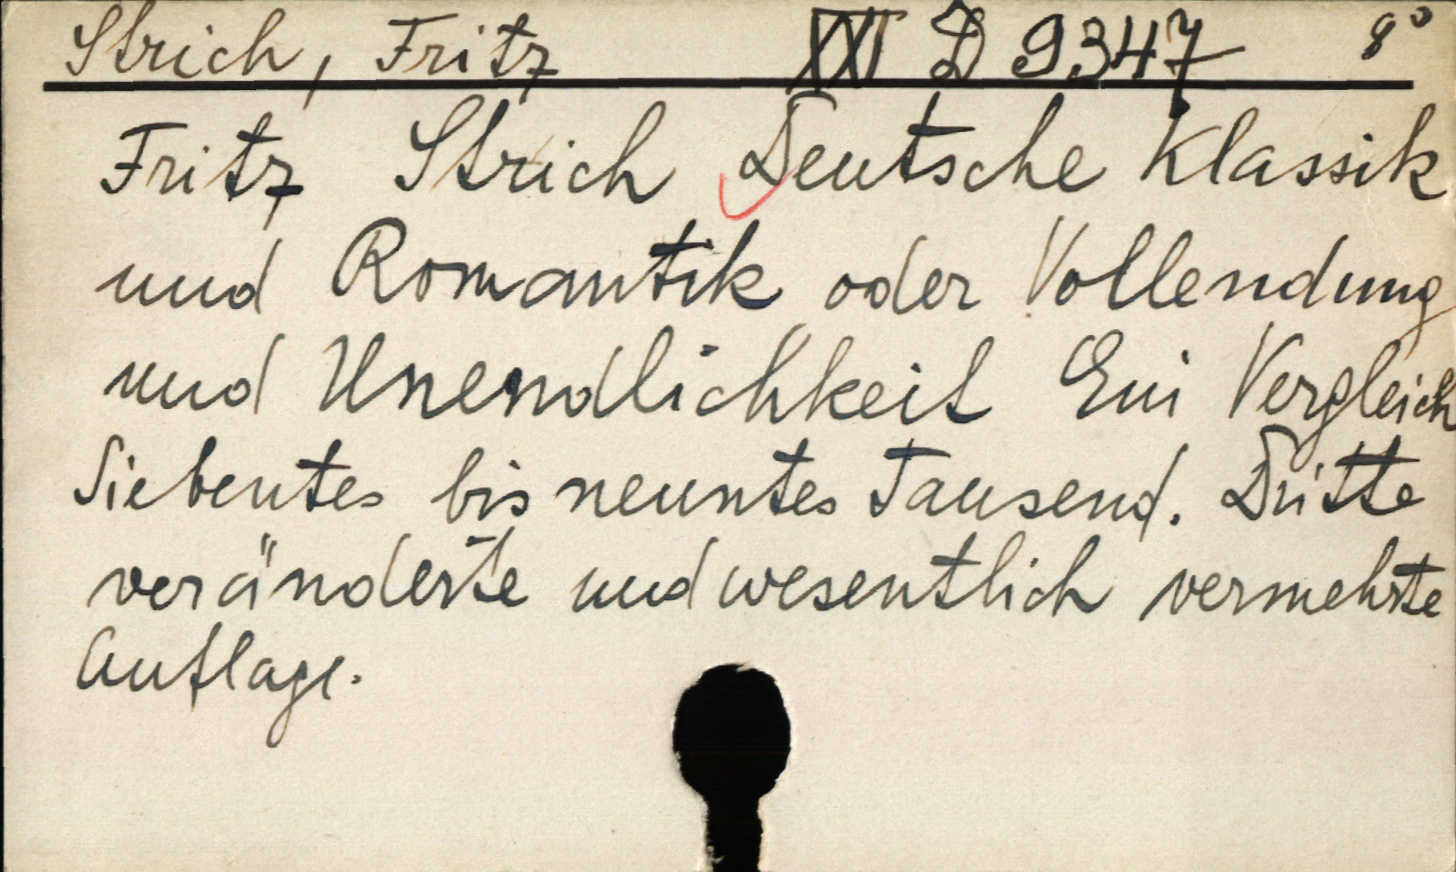 Strich, Fritz XXI D 9347 8°
Fritz Strich Deutsche Klassik
und Romantik oder Vollendung
und Unendlichkeit Ein Vergleich
Siebentes bis neuntes Tausend. Dritte
veränderte und wesentlich vermehrte
Auflage.